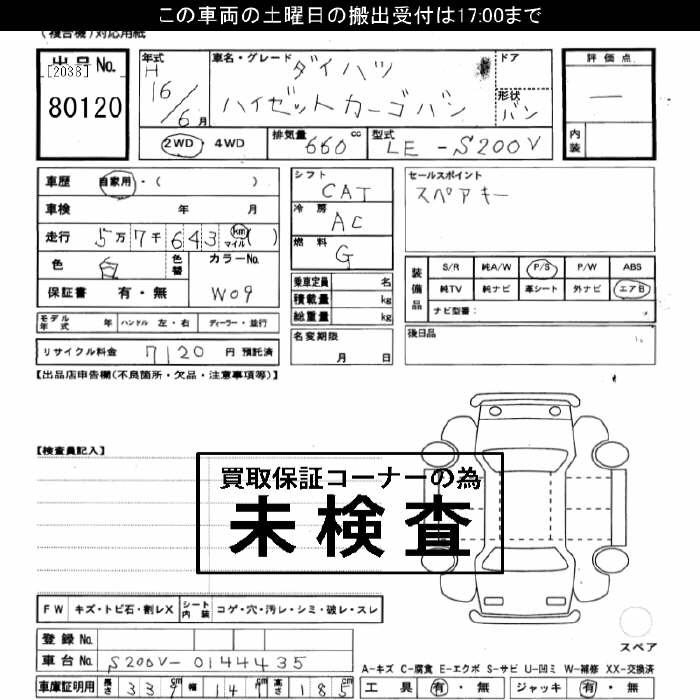 この車両の土曜日の搬出受付は17:00まで
(複合機)対応用紙
出品No.
[2038]
80120
年式
H
16
6月
車名・グレード
ダイハツ
ハイゼットカーゴバン
ドア
形状
バン
評価点
—
内装
2WD・4WD
排気量
660 cc
型式
LE-S200V
車歴 自家用・( )
車検 年 月
走行 5万7千643 km マイル ( )
色 白
色替
カラーNo.
W09
保証書 有・無
シフト
CAT
冷房
AC
燃料
G
セールスポイント
スペアキー
乗車定員 名
積載量 kg
総重量 kg
装備品
S/R 純A/W P/S P/W ABS
純TV 純ナビ 革シート 外ナビ エアB
ナビ型番:
モデル年式 年 ハンドル 左・右 ディーラー・並行
リサイクル料金 7120 円 預託済
名変期限
月 日
後日品
【出品店申告欄(不良箇所・欠品・注意事項等)】
【検査員記入】
買取保証コーナーの為
未検査
FW キズ・トビ石・割レX シート内装 コゲ・穴・汚レ・シミ・破レ・スレ
登録No.
車台No. S200V-0144435
スペア
A-キズ C-腐食 E-エクボ S-サビ U-凹ミ W-補修 XX-交換済
車庫証明用 長さ 339cm 幅 147cm 高さ 185cm
工具 有・無 ジャッキ 有・無